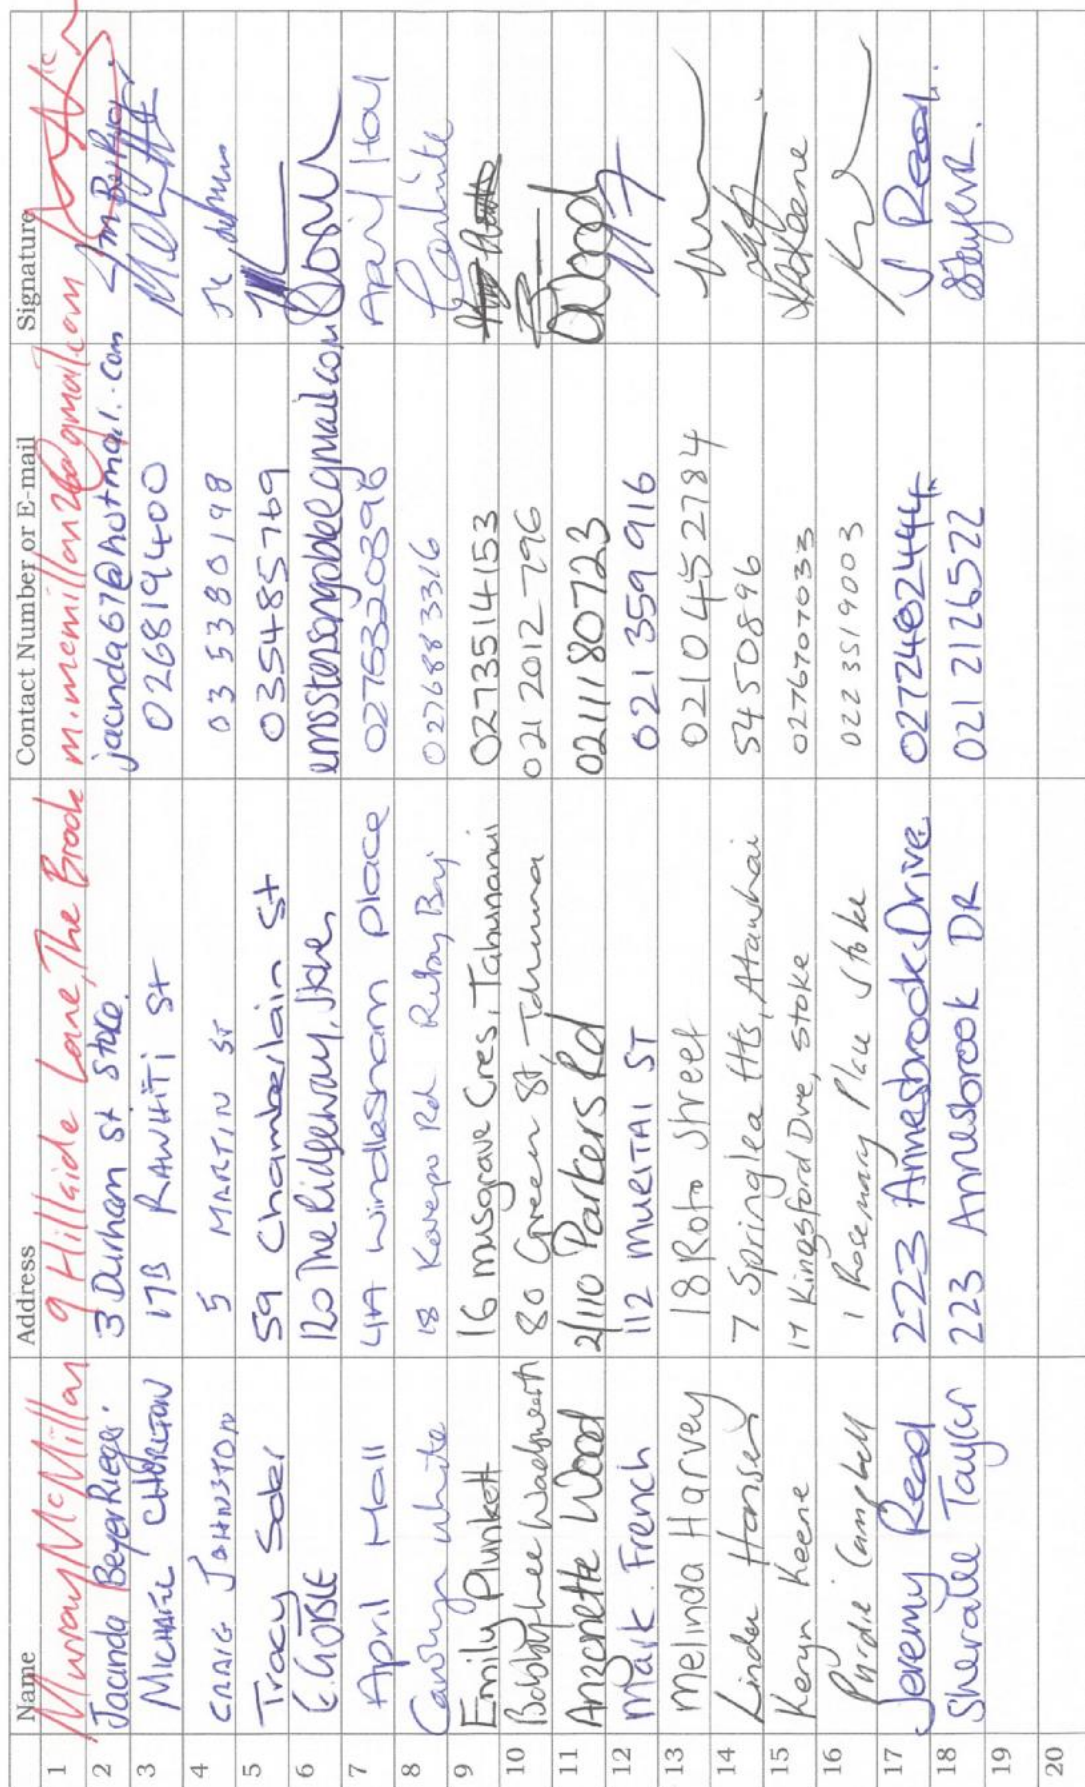 Name Address Contact Number or E-mail Signature
1 Murray McMillan 9 Hillside Lane, The Brook m.mcmillan26@gmail.com
2 Jacinda Beyerkieger 3 Durham St Stoke. jacinda67@hotmail.com
3 MICHAEL CHORLTON 17B RAWHITI St 026819400
4 CRAIG JOHNSTON 5 MARTIN ST 03 538 0198
5 Tracy 59 Chamberlain St 035485769
6 E. GOBLE 120 The Ridgeway, Stoke,
7 April Hall 4A Windlesham Place 02756320896 April Hall
8 Carolyn White 18 Korepo Rd Ruby Bay 0276883316
9 Emily Plunkett 16 Musgrave Cres, Tahunanui 0273514153
10 Bobbylee Wadsworth 80 Green St, Tahuna 021 2012 796
11 Anzonette Wood 2/110 Parkers Rd 02111180723
12 Mark French 112 MURITAI ST 021 359 916
13 Melinda Harvey 18 Roto Street 02104552784
14 Linda Hansen 7 Springlea Hts, Atawhai 5450896
15 Keryn Keene 17 Kingsford Dve, Stoke 0276707033 Keene
16 Purdie Campbell 1 Rosemary Place Stoke 022 3519003
17 Jeremy Read 223 Annesbrook Drive 0272402444 J Read.
18 Sheralee Taylor 223 Annesbrook DR 021 2126522
19
20